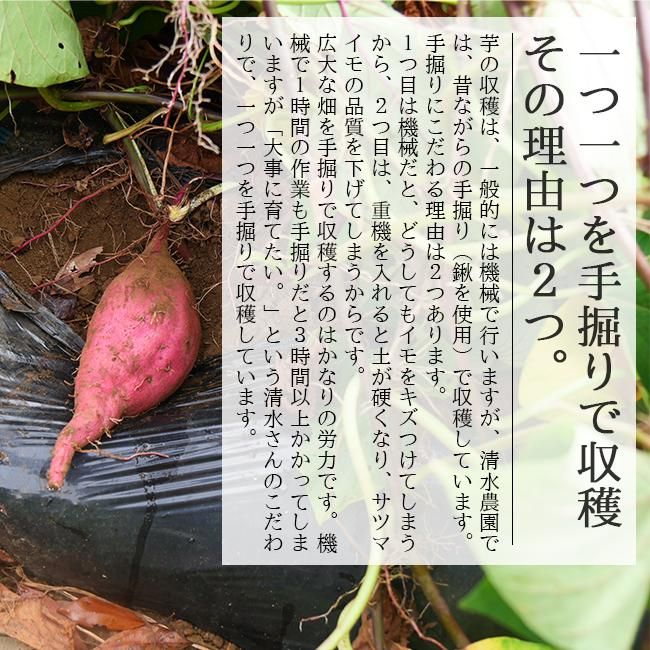 一つ一つを手掘りで収穫
その理由は2つ。
芋の収穫は、一般的には機械で行いますが、清水農園で
は、昔ながらの手掘り（鍬を使用）で収穫しています。
手掘りにこだわる理由は2つあります。
1つ目は機械だと、どうしてもイモをキズつけてしまう
から、2つ目は、重機を入れると土が硬くなり、サツマ
イモの品質を下げてしまうからです。
広大な畑を手掘りで収穫するのはかなりの労力です。機
械で1時間の作業も手掘りだと3時間以上かかってしま
いますが「大事に育てたい。」という清水さんのこだわ
りで、一つ一つを手掘りで収穫しています。